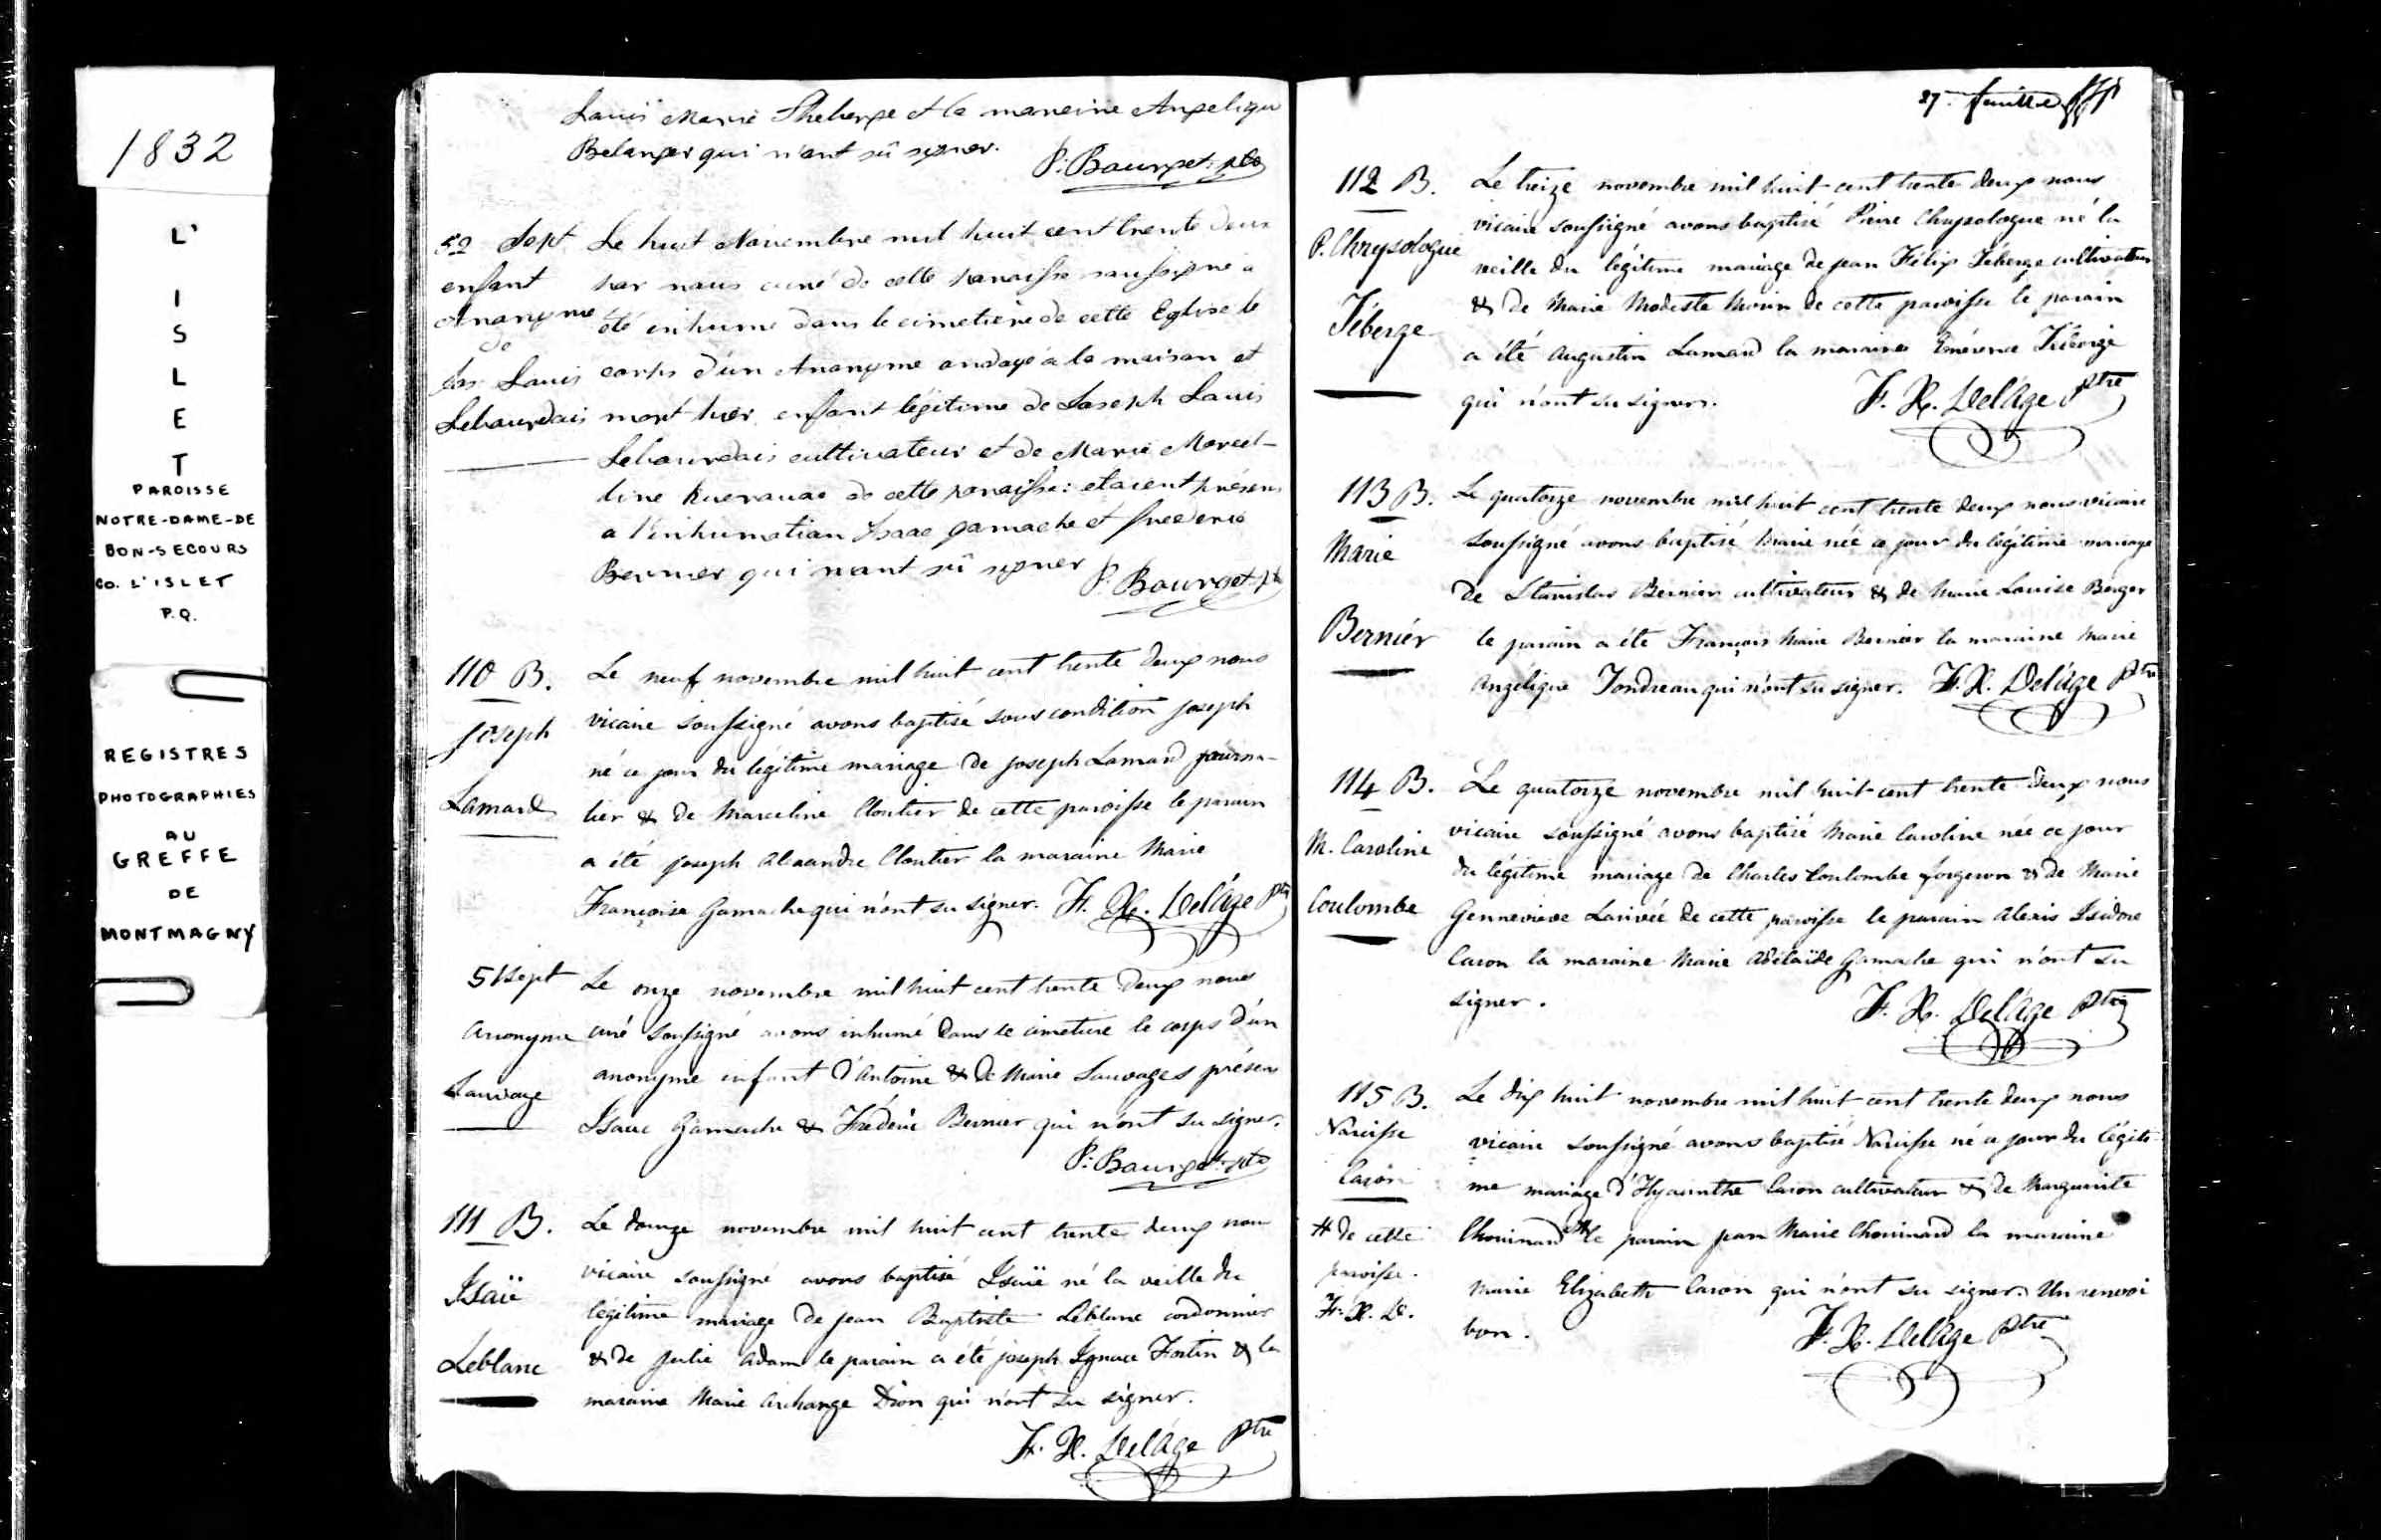 1832
L'
I
S
L
E
T
PAROISSE
NOTRE-DAME-DE
BON-SECOURS
CO. L'ISLET
P.Q.
REGISTRES
PHOTOGRAPHIES
AU
GREFFE
DE
MONTMAGNY
Louis Marie Theberge et la mareine Angeliqu
Belanger qui n'ont sû signer.
P. Bourget: ptr
52 Sept
enfant
Anonyme
de
Jos Louis
Lebourdais
Le huit Novembre mil huit cent trente deux
par nous curé de cette paroisse soussigné a
été inhumé dans le cimetière de cette Eglise le
corps d'un Anonyme ondoyé à la maison et
mort hier enfant légitime de Joseph Louis
Lebourdais cultivateur et de Marie Marcel-
line Kuerouac de cette paroisse: etaient présens
a l'inhumation Isaac gamache et frederic
Bernier qui n'ont sû signer
P. Bourget ptr
110 B.
Joseph
Lamard
Le neuf novembre mil huit cent trente deux nous
vicaire soussigné avons baptisé sous condition joseph
né ce jour du légitime mariage de joseph Lamard journa-
lier & de Marceline Cloutier de cette paroisse le parain
a été joseph alexandre Cloutier la maraine Marie
Françoise Gamache qui n'ont su signer. F. X. Delâge Ptre
51 Sept
anonyme
Sauvage
Le onze novembre mil huit cent trente deux nous
curé soussigné avons inhumé dans le cimetiere le corps d'un
anonyme enfant d'antoine & de Marie Sauvages présens
Isaac Gamache & Fréderic Bernier qui n'ont su signer.
P. Bourget: ptr
111 B.
Isaïe
Leblanc
Le douze novembre mil huit cent trente deux nous
vicaire soussigné avons baptisé Isaïe né la veille du
légitime mariage de jean Baptiste Leblanc cordonnier
& de julie adam le parain a été joseph Ignace Fortin & la
maraine Marie archange Dion qui n'ont su signer.
F. X. Delâge Ptre
27e feuillet
112 B.
P. Chrysologue
Téberge
Le treize novembre mil huit cent trente deux nous
vicaire soussigné avons baptisé Pierre Chrysologue né la
veille du légitime mariage de jean Félix Téberge cultivateur
& de Marie Modeste Morin de cette paroisse le parain
a été augustin Lamard la maraine Emérence
qui n'ont su signer.
F. X. Delâge Ptre
113 B.
Marie
Bernier
Le quatorze novembre mil huit cent trente deux nous vicaire
soussigné avons baptisé Marie née ce jour du légitime mariage
de Stanislas Bernier cultivateur & de Marie Louise Berger
le parain a été François Marie Bernier la maraine Marie
Angélique Tondreau qui n'ont su signer. F. X. Delâge Ptre
114 B.
M. Caroline
Coulombe
Le quatorze novembre mil huit cent trente deux nous
vicaire soussigné avons baptisé Marie Caroline née ce jour
du légitime mariage de Charles Coulombe forgeron & de Marie
Gennevieve Larivée de cette paroisse le parain alexis Isidore
Caron la maraine Marie adélaïde Gamache qui n'ont su
signer.
F. X. Delâge Ptre
115 B.
Narcisse
Caron
# de cette
paroisse.
F. X. D.
Le dix huit novembre mil huit cent trente deux nous
vicaire soussigné avons baptisé Narcisse né ce jour du légiti-
me mariage d'Hyacinthe Caron cultivateur & de Marguerite
Chouinard # le parain jean Marie Chouinard la maraine
Marie Elizabeth Caron qui n'ont su signer. Un renvoi
bon.
F. X. Delâge Ptre